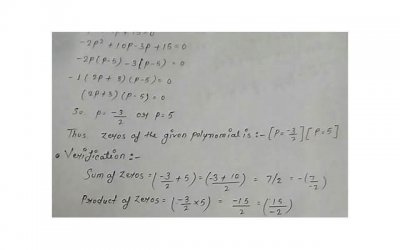 p + 15 = 0
-2p² + 10p - 3p + 15 = 0
-2p(p-5) - 3(p-5) = 0
-1(2p+3)(p-5) = 0
(2p+3)(p-5) = 0
So p = -3/2 or p = 5
Thus zeros of the given polynomial is :- [p = -3/2] [p = 5]
Verification :-
Sum of zeros = (-3/2 + 5) = (-3+10/2) = 7/2 = -(7/-2)
Product of zeros = (-3/2 × 5) = -15/2 = (15/-2)